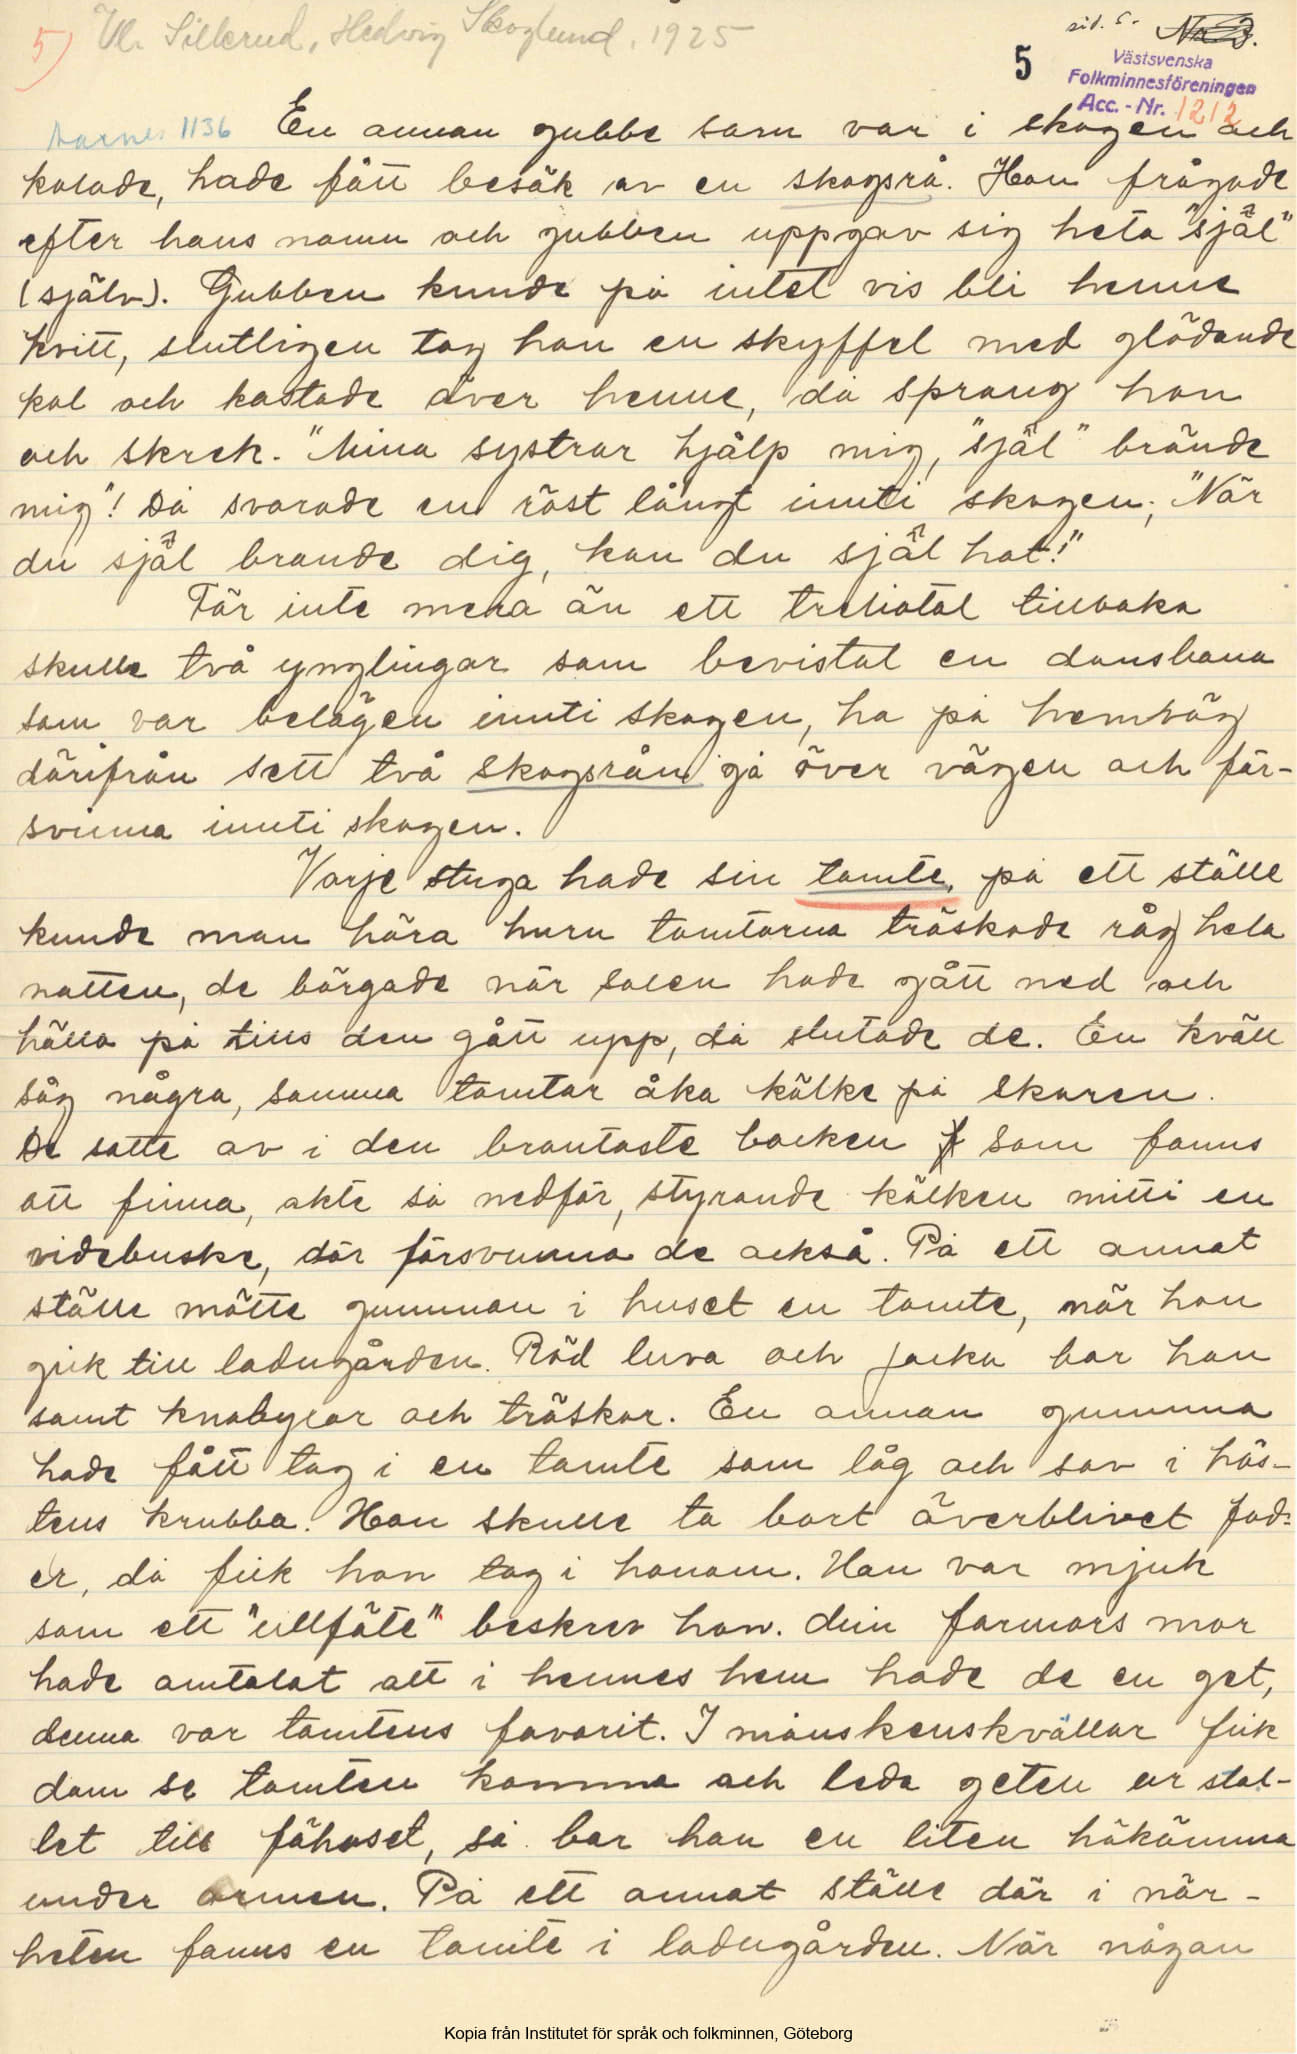 5) V. Sillerud, Hedvig Skoglund, 1925
sid. 5.
5
Västsvenska
Folkminnesföreningen
Acc.-Nr. 1212
1136 En annan gubbe som var i skogen och
kolade, hade fått besök av en skogsrå. Hon frågade
efter hans namn och gubben uppgav sig heta "själ"
(själv). Gubben kunde på intet vis bli henne
kvitt, slutligen tog han en skyffel med glödande
kol och kastade över henne, då sprang hon
och skrek. "Mina systrar hjälp mig, "själ" brände
mig"! Då svarade en röst långt innti skogen; "När
du själ brände dig, kan du själ hat!"
För inte mera än ett trettiotal tillbaka
skulle två ynglingar som bevistat en dansbana
som var belägen innti skogen, ha på hemväg
därifrån sett två skogsrån gå över vägen och för-
svinna innti skogen.
Varje stuga hade sin tomte, på ett ställe
kunde man höra huru tomtarna tröskade råg hela
natten, de börgade när solen hade gått ned och
hålla på tills den gått upp, då slutade de. En kväll
såg några, samma tomtar åka kälke på skaren.
De satte av i den brantaste backen som fanns
att finna, åkte så nedför, styrande kälken mitti en
videbuske, där försvunna de också. På ett annat
ställe mötte gumman i huset en tomte, när hon
gick till ladugården. Röd luva och jacka bar han
samt knäbyxor och träskor. En annan gumma
hade fått tag i en tomte som låg och sov i häs-
tens krubba. Hon skulle ta bort överblivet fod-
er, då fick hon tag i honom. Han var mjuk
som ett "ullföte" beskrev hon. Min farmors mor
hade omtalat att i hennes hem hade de en get,
denna var tomtens favorit. I månskenskvällar fick
dom se tomten komma och leda geten ur stal-
let till fähuset, så bar han en liten hökömma
under armen. På ett annat ställe där i när-
heten fanns en tomte i ladugården. När någon
Kopia från Institutet för språk och folkminnen, Göteborg